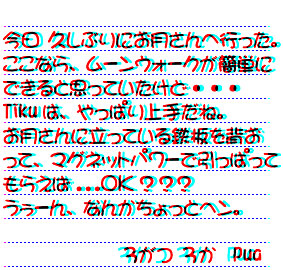 今日 久しぶりにお月さんへ行った。
ここなら、ムーンウォークが簡単に
できると思っていたけど・・・
Tikuは、やっぱり上手だね。
お月さんに立っている鉄板を背お
って、マグネットパワーで引っぱって
もらえば ....OK？？？
うぅーん、なんかちょっとヘン。
3がつ 3か Pua